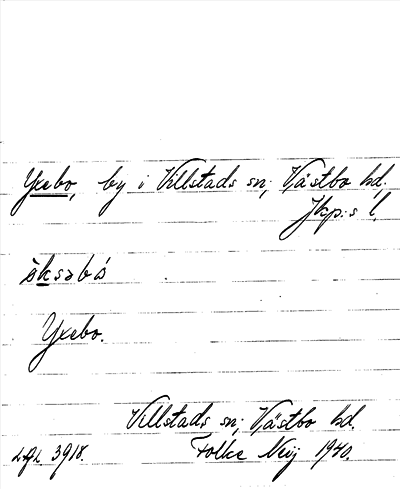 Yxebo, by i Villstads sn; Västbo hd.
Jkp:s l.
öksabo
Yxebo.
Villstads sn; Västbo hd.
Folke Neij 1940.
LAL 3918.